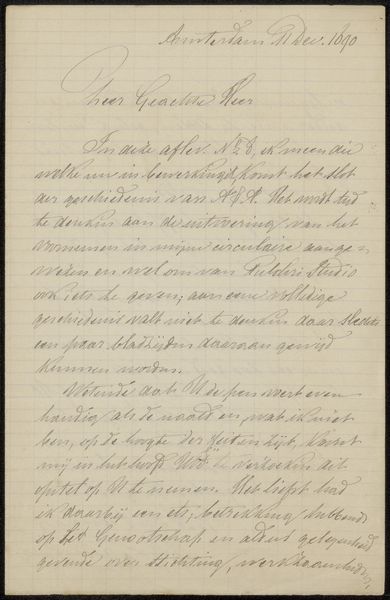 Amsterdam 11 Dec. 1890
Zeer Geachte Heer
In deze aflev. No 5, ik meen die
welke nu in bewerking, komt het slot
der geschiedenis van A. & A. Het wordt tijd
te denken aan de uitvoering van het
voornemen in mijne circulaire aange-
wezen en wel om van Pulchri Studio
ook iets te geven; aan eene volledige
geschiedenis valt niet te denken daar slechts
een paar bladzijden daaraan gewijd
kunnen worden.
Wetende dat U de pen weet even
handig als de naald en, wat ik niet
ben, op de hoogte der zijt, komt
mij in het hoofd U te verzoeken dit
opstel op U te nemen. Het liefst had
ik daarbij een ets, betrekking hebbende
op het Genootschap en aldus gelegenheid
gevende over stichting, werkzaamheden,